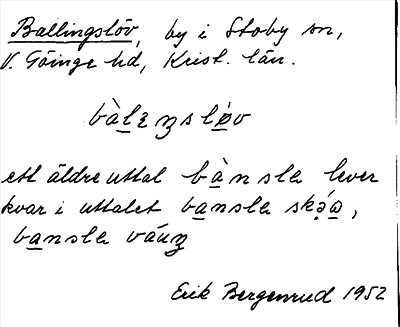 Ballingslöv, by i Stoby sn,
V. Göinge hd, Krist. län.
bàleŋsløv
ett äldre uttal bànsla lever
kvar i uttalet bansla
bansla
Erik Bergenrud 1952